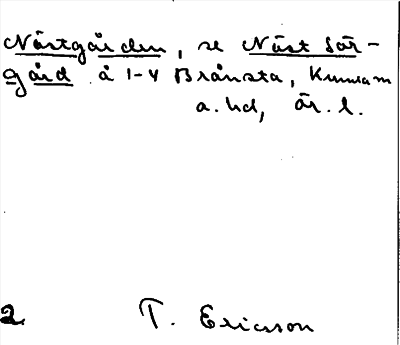 Nästgården, se Näst Sör-
gård å 1-4 Brånsta, Kumla m
a. hd, Är. l.
2 T. Ericson